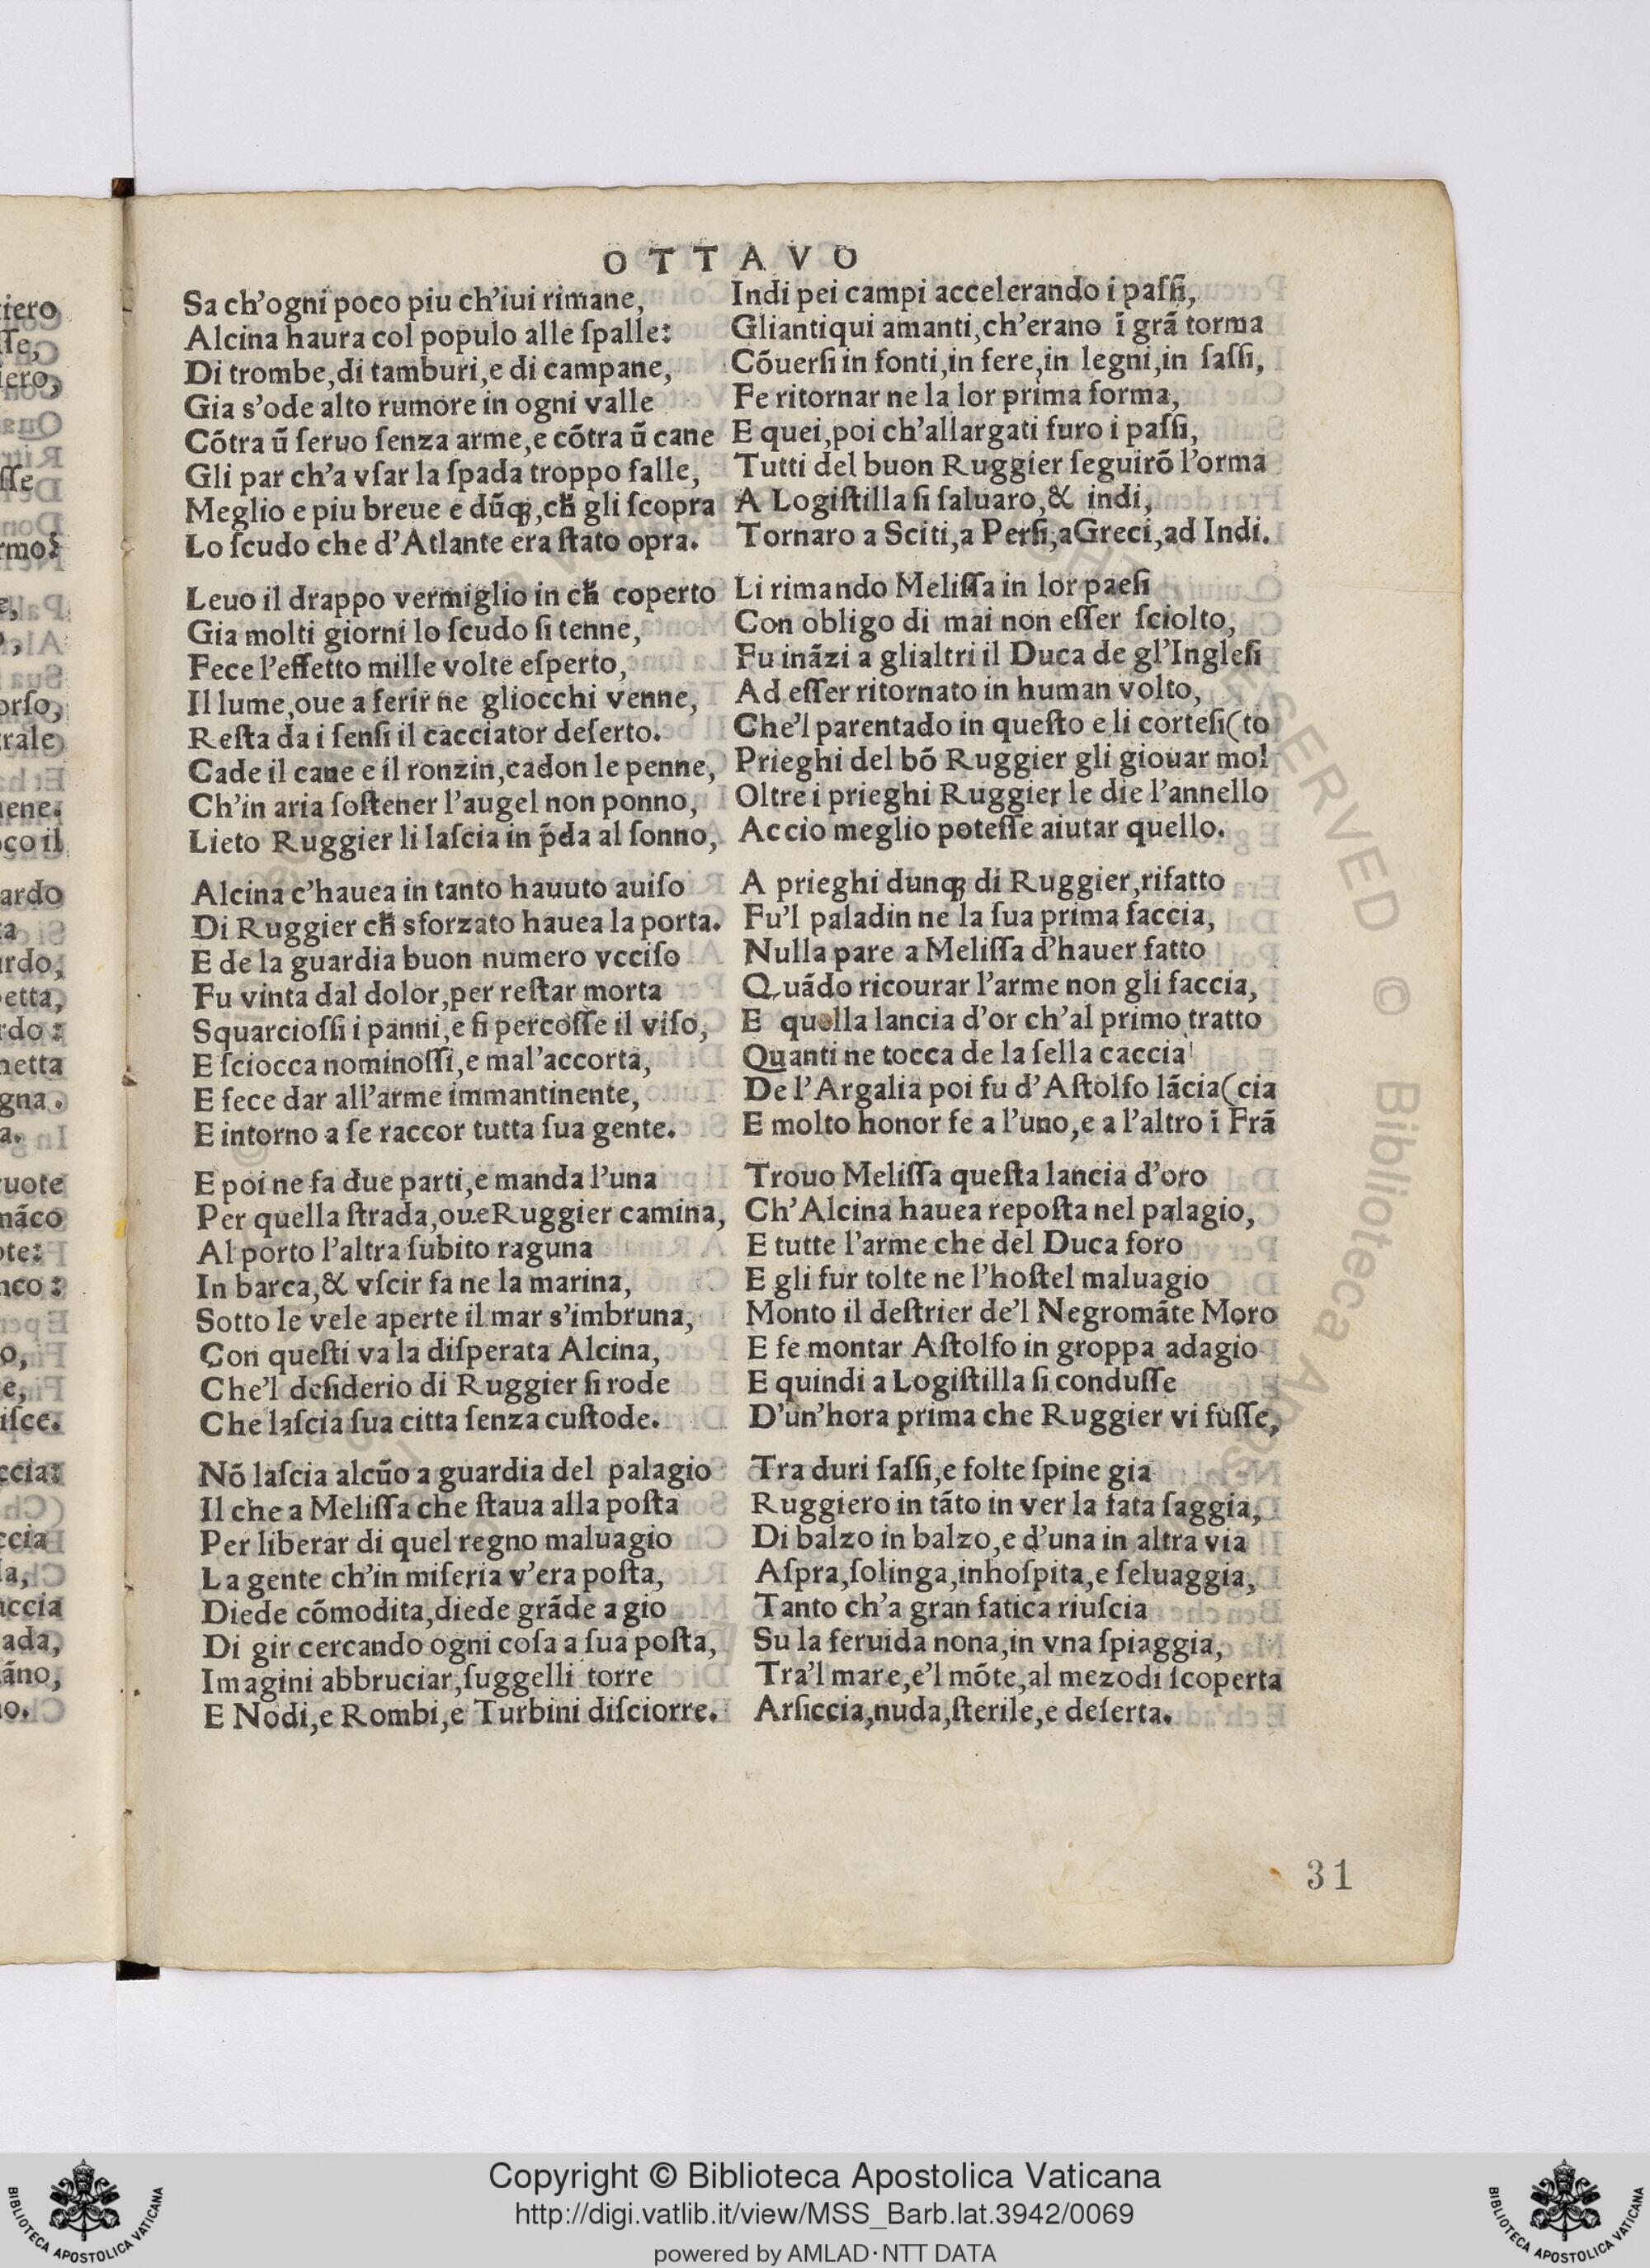 OTTAVO
Sa ch'ogni poco piu ch'iui rimane,
Alcina haura col populo alle ſpalle:
Di trombe,di tamburi,e di campane,
Gia s'ode alto rumore in ogni valle
Cõtra ũ ſeruo ſenza arme,e cõtra ũ cane
Gli par ch'a vſar la ſpada troppo falle,
Meglio e piu breue e dũqꝫ,ch̃ gli ſcopra
Lo ſcudo che d'Atlante era ſtato opra.
Leuo il drappo vermiglio in ch̃ coperto
Gia molti giorni lo ſcudo ſi tenne,
Fece l'effetto mille volte eſperto,
Il lume,oue a ferir ne gliocchi venne,
Reſta da i ſenſi il cacciator deſerto.
Cade il cane e il ronzin,cadon le penne,
Ch'in aria ſoſtener l'augel non ponno,
Lieto Ruggier li laſcia in p̃da al ſonno,
Alcina c'hauea in tanto hauuto auiſo
Di Ruggier ch̃ sforzato hauea la porta.
E de la guardia buon numero vcciſo
Fu vinta dal dolor,per reſtar morta
Squarcioſſi i panni,e ſi percoſſe il viſo,
E ſciocca nominoſſi,e mal'accorta,
E fece dar all'arme immantinente,
E intorno a ſe raccor tutta ſua gente.
E poi ne fa due parti,e manda l'una
Per quella ſtrada,oueRuggier camina,
Al porto l'altra ſubito raguna
In barca,& vſcir fa ne la marina,
Sotto le vele aperte il mar s'imbruna,
Con queſti va la diſperata Alcina,
Che'l deſiderio di Ruggier ſi rode
Che laſcia ſua citta ſenza cuſtode.
Nõ laſcia alcũo a guardia del palagio
Il che a Meliſſa che ſtaua alla poſta
Per liberar di quel regno maluagio
La gente ch'in miſeria v'era poſta,
Diede cõmodita,diede grãde agio
Di gir cercando ogni coſa a ſua poſta,
Imagini abbruciar,ſuggelli torre
E Nodi,e Rombi,e Turbini diſciorre.
Indi pei campi accelerando i paſſi,
Gliantiqui amanti,ch'erano ĩ grã torma
Cõuerſi in fonti,in fere,in legni,in ſaſſi,
Fe ritornar ne la lor prima forma,
E quei,poi ch'allargati furo i paſſi,
Tutti del buon Ruggier ſeguirõ l'orma
A Logiſtilla ſi ſaluaro,& indi,
Tornaro a Sciti,a Perſi,aGreci,ad Indi.
Li rimando Meliſſa in lor paeſi
Con obligo di mai non eſſer ſciolto,
Fu inãzi a glialtri il Duca de gl'Ingleſi
Ad eſſer ritornato in human volto,
Che'l parentado in queſto e li corteſi(to
Prieghi del bõ Ruggier gli giouar mol
Oltre i prieghi Ruggier le die l'annello
Accio meglio poteſſe aiutar quello.
A prieghi dunqꝫ di Ruggier,rifatto
Fu'l paladin ne la ſua prima faccia,
Nulla pare a Meliſſa d'hauer fatto
Quãdo ricourar l'arme non gli faccia,
E quella lancia d'or ch'al primo tratto
Quanti ne tocca de la ſella caccia
De l'Argalia poi fu d'Aſtolfo lãcia(cia
E molto honor fe a l'uno,e a l'altro ĩ Frã
Trouo Meliſſa queſta lancia d'oro
Ch'Alcina hauea repoſta nel palagio,
E tutte l'arme che del Duca foro
E gli fur tolte ne l'hoſtel maluagio
Monto il deſtrier de'l Negromãte Moro
E fe montar Aſtolfo in groppa adagio
E quindi a Logiſtilla ſi conduſſe
D'un'hora prima che Ruggier vi fuſſe,
Tra duri ſaſſi,e folte ſpine gia
Ruggiero in tãto in ver la fata ſaggia,
Di balzo in balzo,e d'una in altra via
Aſpra,ſolinga,inhoſpita,e ſeluaggia,
Tanto ch'a gran fatica riuſcia
Su la feruida nona,in vna ſpiaggia,
Tra'l mare,e'l mõte,al mezodi ſcoperta
Arſiccia,nuda,ſterile,e deſerta.
31
Copyright © Biblioteca Apostolica Vaticana
http://digi.vatlib.it/view/MSS_Barb.lat.3942/0069
powered by AMLAD·NTT DATA
BIBLIOTECA APOSTOLICA VATICANA
BIBLIOTECA APOSTOLICA VATICANA